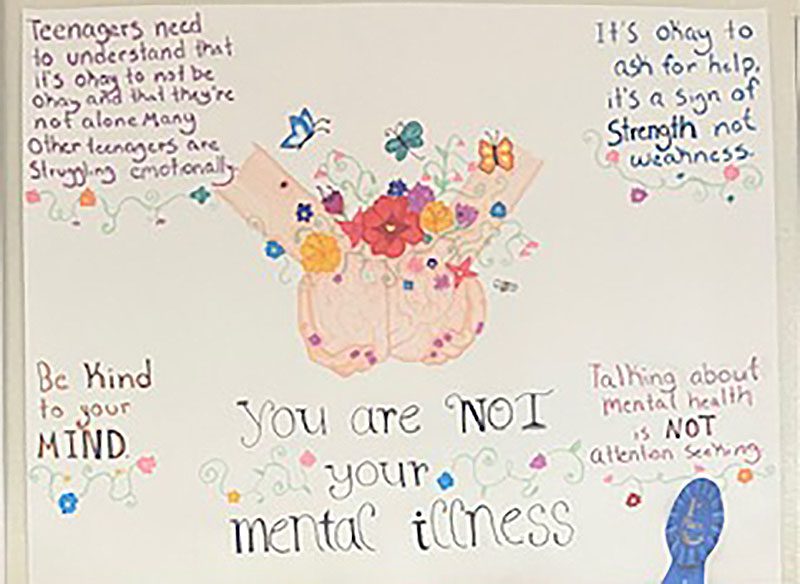 Teenagers need
to understand that
it's okay to not be
okay and that they're
not alone Many
Other teenagers are
Struggling emotionally.
It's okay to
ask for help,
it's a sign of
Strength not
weakness.
Be Kind
to your
MIND.
you are NOT
your
mental illness
Talking about
mental health
is NOT
attention seeking